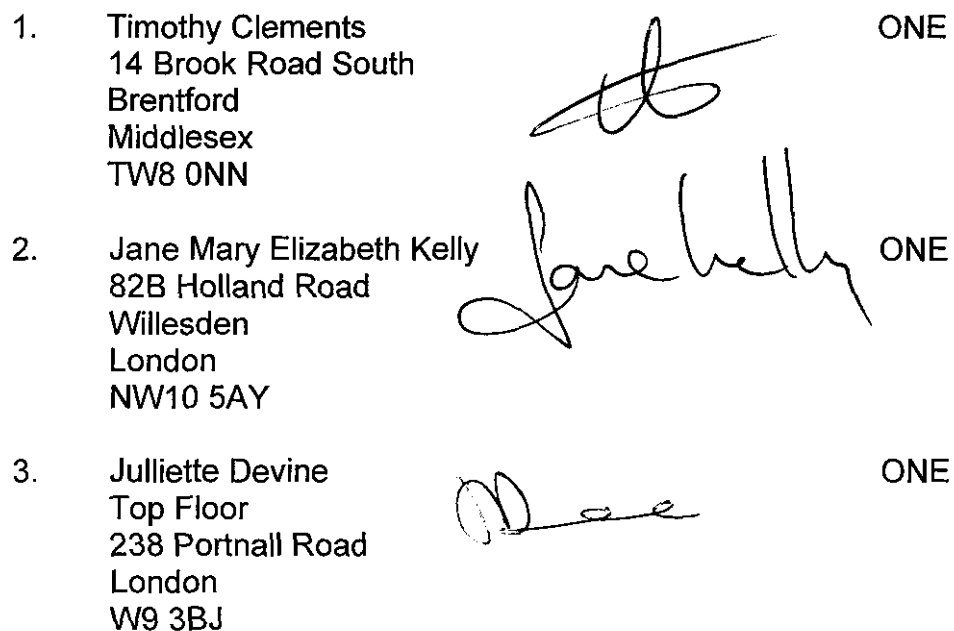 1. Timothy Clements ONE
14 Brook Road South
Brentford
Middlesex
TW8 0NN
2. Jane Mary Elizabeth Kelly ONE
82B Holland Road
Willesden
London
NW10 5AY
Jane Kelly
3. Julliette Devine ONE
Top Floor
238 Portnall Road
London
W9 3BJ